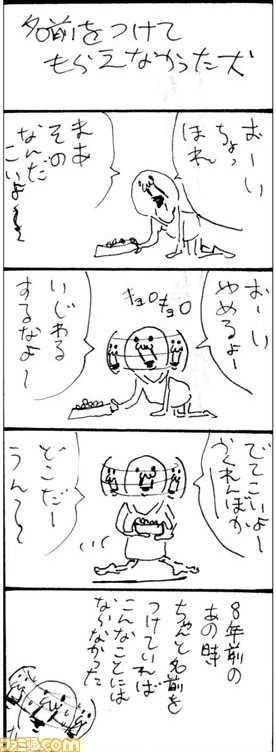 名前をつけて
もらえなかった犬
おーい
ちょっ
ほれ
まあ
その
なんだ
こいよ〜〜
おーい
やめろよー
キョロキョロ
いじわる
するなよ〜
でてこいよー
かくれんぼか
どこだー
うん〜〜
8年前の
あの時
ちゃんと名前を
つけていれば
こんなことには
ならなかった
ファミ通.com